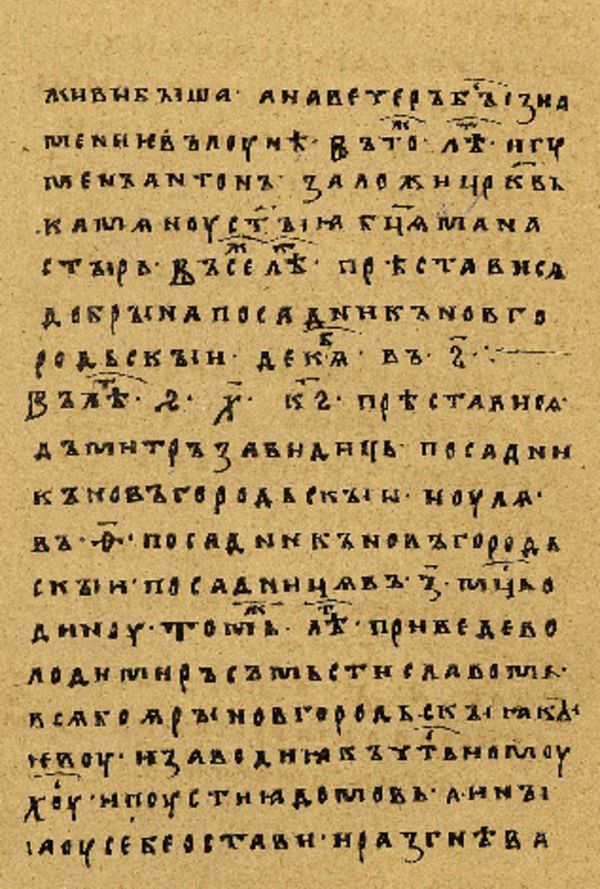 живи быша · а на вечеръ бы̑ зна
мении въ лоунѣ · Въ тож лѣт игу
менъ антонъ · заложи црк҃вь
камѧноу ст҃ыꙗ бц҃ѧ мана
стырь · Въ се ж лѣт · прѣстависѧ
добрына посадникъ новго
родьскыи · декѧб · въ · ѕ҃ ·
Въ лѣт · ҂ѕ · х҃ · кѕ҃ · прѣстависѧ ·
дъмитръ завидиць · посадни
къ новъгородьскыи · иоулѧ ·
въ · ѳ҃ · посадникъ новъгородь
скыи · посадницѧвъ · з҃ · мц҃ь о
диноу · Томь ж лѣт · приведе во
лодимиръ съ мьстиславомь ·
всѧ боꙗры новгородьскыꙗ кꙑ
ѥвоу · и заводи ꙗ къ чт҃ьномоу
хс҃у · и поусти ꙗ домовь · а ины
ꙗ оу себе остави · и разгнѣва